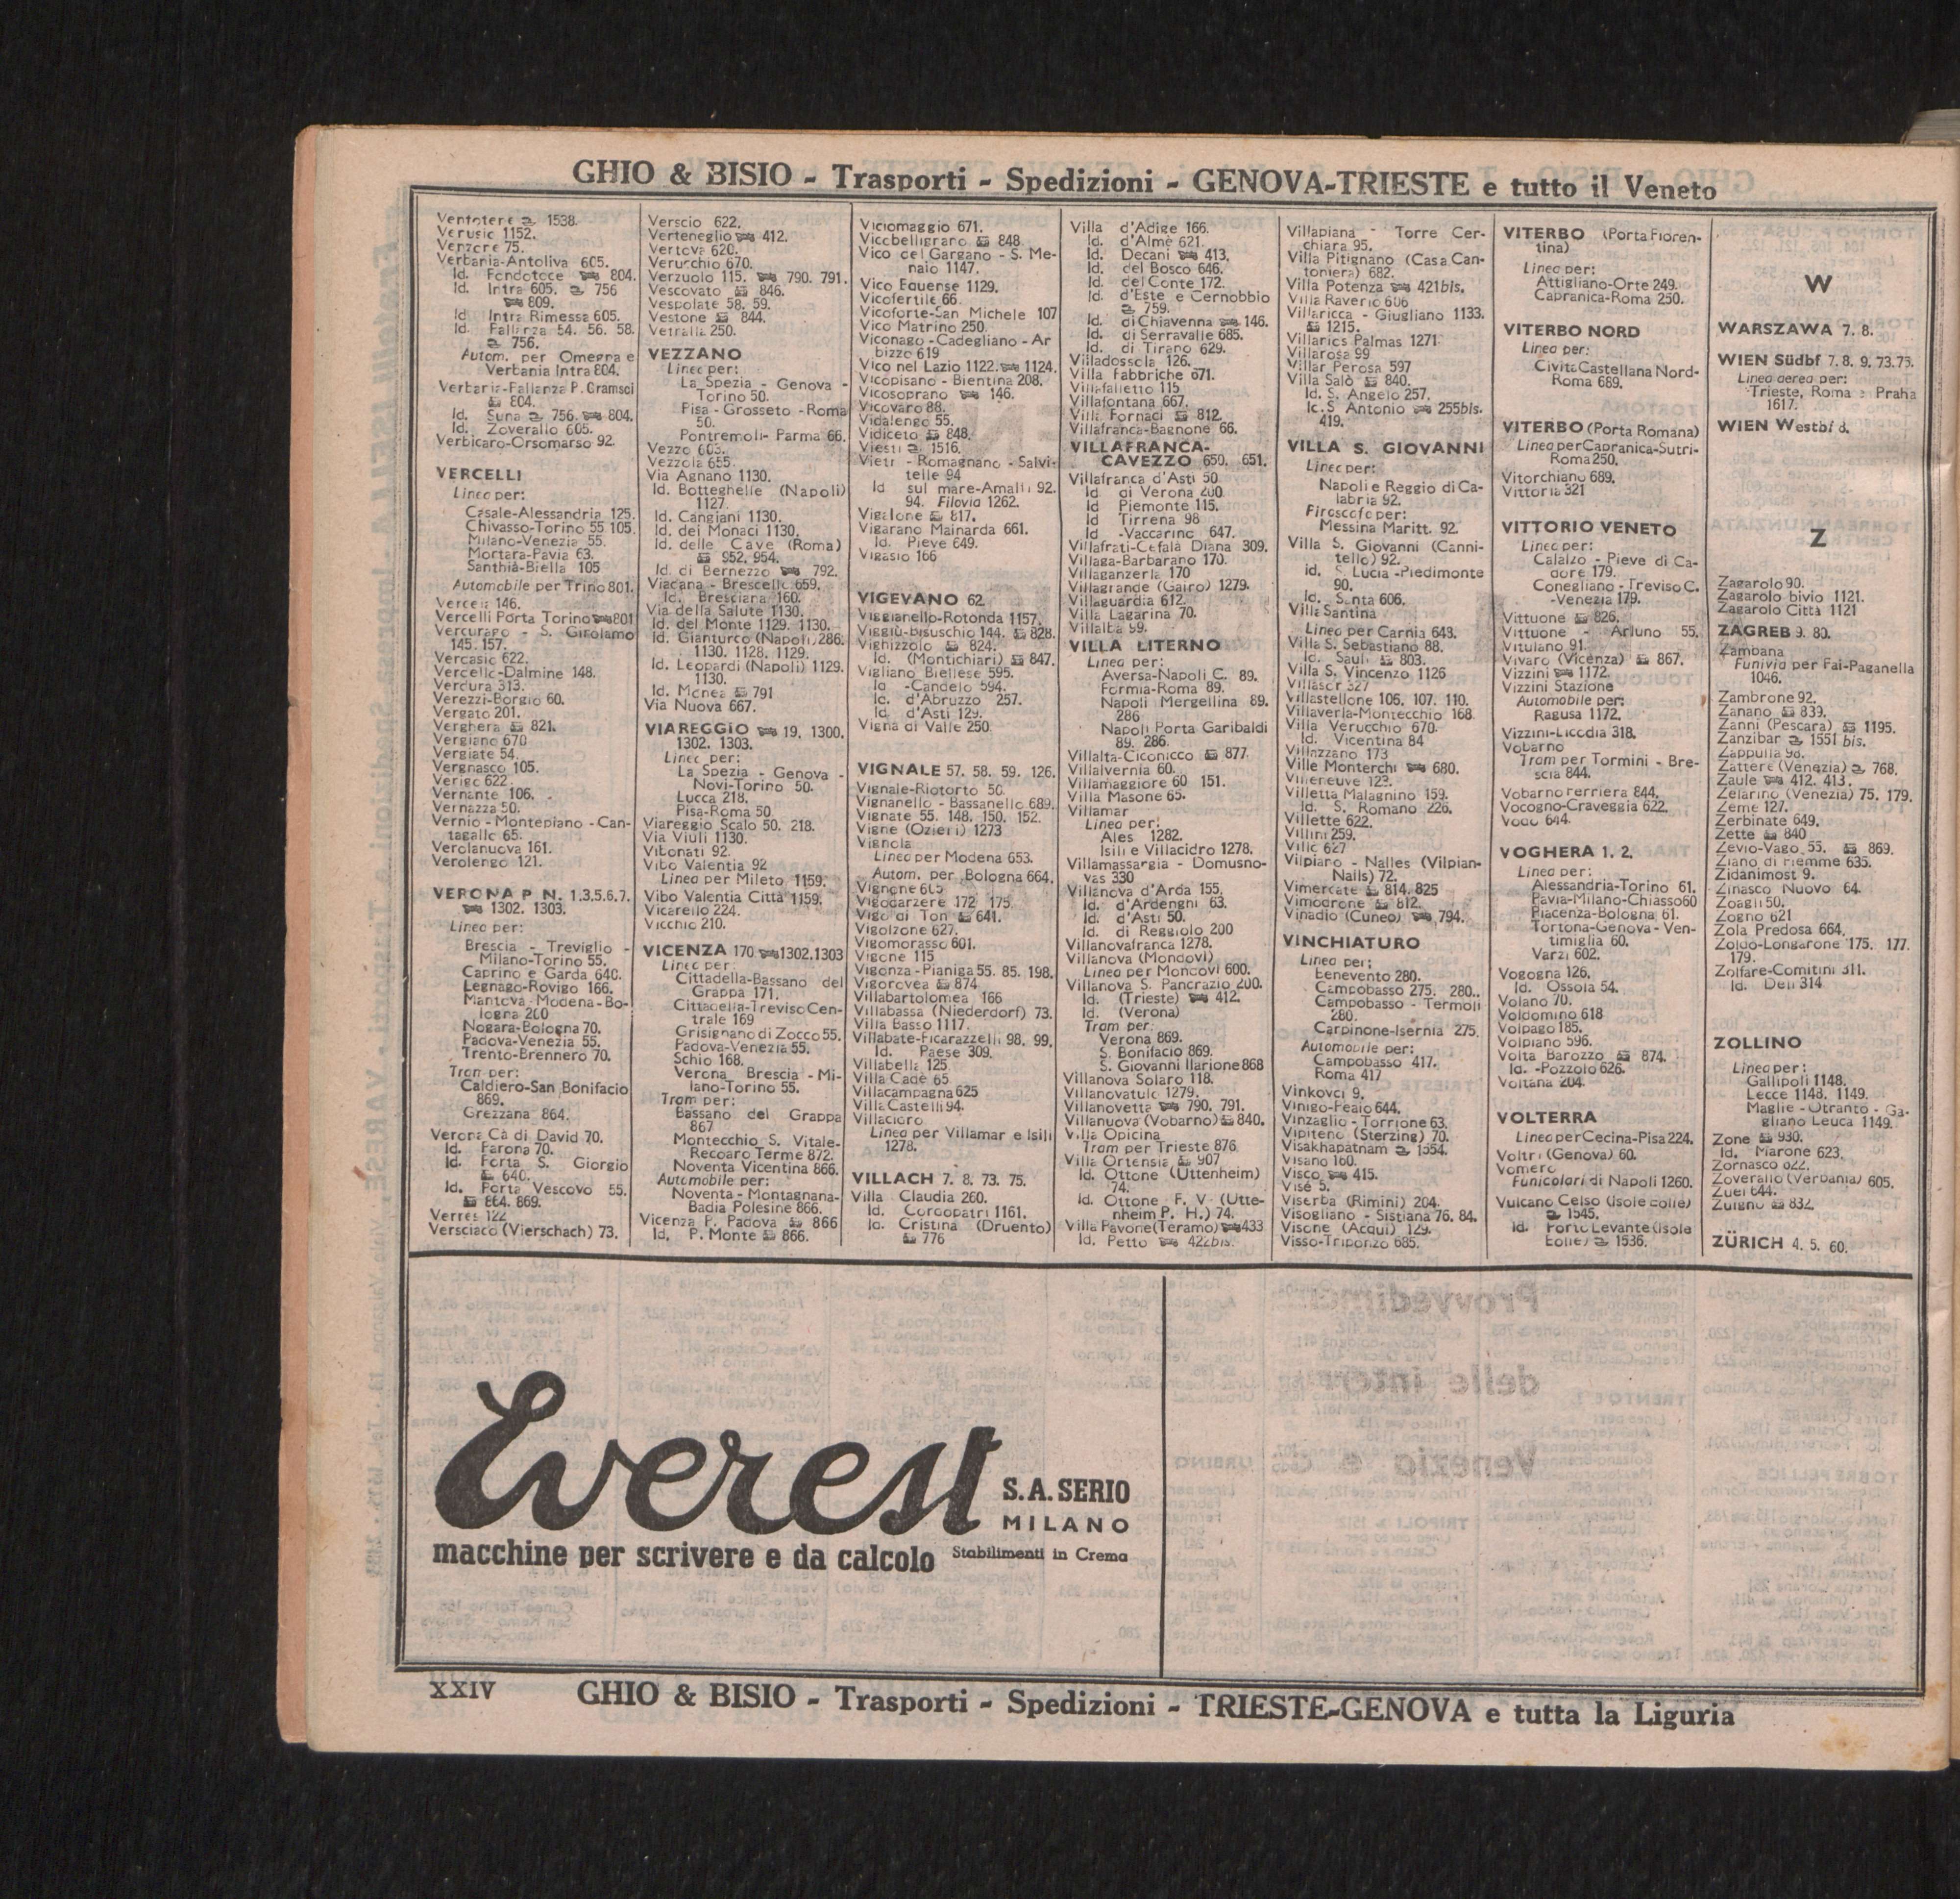 GHIO & BISIO - Trasporti - Spedizioni - GENOVA-TRIESTE e tutto il Veneto
Ventotene 1538.
Verusic 1152.
Venzone 75.
Verbania-Antoliva 605.
Id. Fondotoce 804.
Id. Intra 605. 756
809.
Id. Intra Rimessa 605.
Id. Fallanza 54. 56. 58.
756.
Autom. per Omegna e
Verbania Intra 804.
Verbania-Fallanza P. Gramsci
804.
Id. Suna 756. 804.
Id. Zoverallo 605.
Verbicaro-Orsomarso 92.
VERCELLI
Linee per:
Casale-Alessandria 125.
Chivasso-Torino 55 105.
Milano-Venezia 55.
Mortara-Pavia 63.
Santhià-Biella 105
Automobile per Trino 801.
Verceia 146.
Vercelli Porta Torino 801
Vercurago - S. Girolamo
145. 157.
Vercasio 622.
Vercello-Dalmine 148.
Verdura 313.
Verezzi-Borgio 60.
Vergato 201.
Verghera 821.
Vergiano 670
Vergiate 54.
Vergnasco 105.
Verigo 622
Vernante 106.
Vernazza 50.
Vernio - Montepiano - Can-
tagallo 65.
Verolanuova 161.
Verolengo 121.
VERONA P N. 1.3.5.6.7.
1302. 1303.
Linee per:
Brescia - Treviglio -
Milano-Torino 55.
Caprino e Garda 640.
Legnago-Rovigo 166.
Mantova-Modena-Bo-
logna 200
Nogara-Bologna 70.
Padova-Venezia 55.
Trento-Brennero 70.
Tram per:
Caldiero-San Bonifacio
869.
Grezzana 864.
Verona Cà di David 70.
Id. Parona 70.
Id. Porta S. Giorgio
640.
Id. Porta Vescovo 55.
864. 869.
Verres 122
Versciaco (Vierschach) 73.
Verscio 622.
Verteneglio 412.
Vertova 620.
Verucchio 670.
Verzuolo 115. 790. 791.
Vescovato 846.
Vespolate 58. 59.
Vestone 844.
Vetralla 250.
VEZZANO
Linee per:
La Spezia - Genova -
Torino 50.
Pisa - Grosseto - Roma
50.
Pontremoli- Parma 66.
Vezzo 603.
Vezzola 655.
Via Agnano 1130.
Id. Botteghelle (Napoli)
1127.
Id. Cangiani 1130.
Id. dei Monaci 1130.
Id. delle Cave (Roma)
952. 954.
Id. di Bernezzo 792.
Viadana - Brescello 659.
Id. Bresciana 160.
Via della Salute 1130.
Id. del Monte 1129. 1130.
Id. Gianturco (Napoli) 286.
1130. 1128. 1129.
Id. Leopardi (Napoli) 1129.
1130.
Id. Monea 791
Via Nuova 667.
VIAREGGIO 19. 1300.
1302. 1303.
Linee per:
La Spezia - Genova -
Novi-Torino 50.
Lucca 218.
Pisa-Roma 50
Viareggio Scalo 50. 218.
Via Viuli 1130.
Vibonati 92.
Vibo Valentia 92
Linea per Mileto 1159.
Vibo Valentia Città 1159.
Vicarello 224.
Vicchio 210.
VICENZA 170 1302.1303
Linee per:
Cittadella-Bassano del
Grappa 171.
Cittadella-Treviso Cen-
trale 169
Grisignano di Zocco 55.
Padova-Venezia 55.
Schio 168.
Verona Brescia - Mi-
lano-Torino 55.
Tram per:
Bassano del Grappa
867
Montecchio S. Vitale-
Recoaro Terme 872.
Noventa Vicentina 866.
Automobile per:
Noventa - Montagnana-
Badia Polesine 866.
Vicenza P. Padova 866
Id. P. Monte 866.
Viciomaggio 671.
Vicobellignano 848.
Vico del Gargano - S. Me-
naio 1147.
Vico Equense 1129.
Vicofertile 66.
Vicoforte-San Michele 107
Vico Matrino 250.
Viconago - Cadegliano - Ar
bizzo 619
Vico nel Lazio 1122. 1124.
Vicopisano - Bientina 208.
Vicosoprano 146.
Vicovaro 88.
Vidalengo 55.
Vidiceto 848.
Viesti 1516.
Vietr - Romagnano - Salvi-
telle 94
Id sul mare-Amalfi 92.
94. Filovia 1262.
Vigalone 817.
Vigarano Mainarda 661.
Id. Pieve 649.
Vigasio 166
VIGEVANO 62.
Viggianello-Rotonda 1157.
Viggiù-Bisuschio 144. 828.
Vighizzolo 824.
Id. (Montichiari) 847.
Vigliano Biellese 595.
Id -Candelo 594.
Id. d'Abruzzo 257.
Id. d'Asti 129.
Vigna di Valle 250.
VIGNALE 57. 58. 59. 126.
Vignale-Riotorto 50.
Vignanello - Bassanello 689.
Vignate 55. 148. 150. 152.
Vigne (Ozieri) 1273
Vignola
Linea per Modena 653.
Autom. per Bologna 664.
Vignone 605
Vigodarzere 172 175.
Vigo di Ton 641.
Vigolzone 627.
Vigomorasso 601.
Vigone 115
Vigonza - Pianiga 55. 85. 198.
Vigorovea 874
Villabartolomea 166
Villabassa (Niederdorf) 73.
Villa Basso 1117.
Villabate-Ficarazzelli 98. 99.
Id. Paese 309.
Villabella 125.
Villa Cadè 65
Villacampagna 625
Villa Castelli 94.
Villacidro
Linea per Villamar e Isili
1278.
VILLACH 7. 8. 73. 75.
Villa Claudia 260.
Id. Cordopatri 1161.
Id. Cristina (Druento)
776
Villa d'Adige 166.
Id. d'Almè 621.
Id. Decani 413.
Id. del Bosco 646.
Id. del Conte 172.
Id. d'Este e Cernobbio
759.
Id. di Chiavenna 146.
Id. di Serravalle 685.
Id. di Tirano 629.
Villadossola 126.
Villa Fabbriche 671.
Villafalletto 115
Villafontana 667.
Villa Fornaci 812.
Villafranca-Bagnone 66.
VILLAFRANCA-
CAVEZZO 650. 651.
Villafranca d'Asti 50
Id di Verona 200.
Id Piemonte 115.
Id Tirrena 98
Id -Vaccarino 647.
Villafrati-Cefalà Diana 309.
Villaga-Barbarano 170.
Villaganzerla 170
Villagrande (Gairo) 1279.
Villaguardia 612.
Villa Lagarina 70.
Villalba 99.
VILLA LITERNO
Linea per:
Aversa-Napoli C. 89.
Formia-Roma 89.
Napoli Mergellina 89.
286
Napoli Porta Garibaldi
89. 286.
Villalta-Ciconicco 877.
Villalvernia 60.
Villamaggiore 60 151.
Villa Masone 65.
Villamar
Linea per:
Ales 1282.
Isili e Villacidro 1278.
Villamassargia - Domusno-
vas 330
Villanova d'Arda 155.
Id. d'Ardengni 63.
Id. d'Asti 50.
Id. di Reggiolo 200
Villanovafranca 1278.
Villanova (Mondovì)
Linea per Mondovì 600.
Villanova S. Pancrazio 200.
Id. (Trieste) 412.
Id. (Verona)
Tram per:
Verona 869.
S. Bonifacio 869.
S. Giovanni Ilarione 868
Villanova Solaro 118.
Villanovatulo 1279.
Villanovetta 790. 791.
Villanuova (Vobarno) 840.
Villa Opicina
Tram per Trieste 876
Villa Ortensia 907
Id. Ottone (Uttenheim)
74.
Id. Ottone F. V (Utte-
nheim P. H.) 74.
Villa Pavone (Teramo) 433
Id. Petto 422bis.
Villapiana - Torre Cer-
chiara 95.
Villa Pitignano (Casa Can-
toniera) 682.
Villa Potenza 421bis.
Villa Raverio 606
Villaricca - Giugliano 1133.
1215.
Villarios Palmas 1271
Villarosa 99
Villar Perosa 597
Villa Salò 840.
Id. S. Angelo 257.
Id. S Antonio 255bis.
419.
VILLA S. GIOVANNI
Linee per:
Napoli e Reggio di Ca-
labria 92.
Piroscafo per:
Messina Maritt. 92.
Villa S. Giovanni (Canni-
tello) 92.
id. S. Lucia -Piedimonte
90.
Id. Santa 606.
Villa Santina
Linea per Carnia 643.
Villa S. Sebastiano 88.
Id. Sauli 803.
Villa S. Vincenzo 1126
Villasor 327
Villastellone 106. 107. 110.
Villaverla-Montecchio 168
Villa Verucchio 670.
Id. Vicentina 84
Villazzano 173
Ville Monterchi 680.
Villeneuve 123.
Villetta Malagnino 159.
Id. S. Romano 226.
Villette 622.
Villini 259.
Villo 627
Vilpiano - Nalles (Vilpian-
Nalls) 72.
Vimercate 814. 825
Vimodrone 812.
Vinadio (Cuneo) 794.
VINCHIATURO
Linee per:
Benevento 280.
Campobasso 275. 280..
Campobasso - Termoli
280.
Carpinone-Isernia 275.
Automobile per:
Campobasso 417.
Roma 417
Vinkovci 9.
Vinigo-Peaio 644.
Vinzaglio - Torrione 63.
Vipiteno (Sterzing) 70.
Visakhapatnam 1554.
Visano 160.
Visco 415.
Visé 5.
Viserba (Rimini) 204.
Visogliano - Sistiana 76. 84.
Visone (Acqui) 129.
Visso-Triponzo 685.
VITERBO (Porta Fioren-
tina)
Linea per:
Attigliano-Orte 249.
Capranica-Roma 250.
VITERBO NORD
Linea per:
Civita Castellana Nord-
Roma 689.
VITERBO (Porta Romana)
Linea per Capranica-Sutri-
Roma 250.
Vitorchiano 689.
Vittoria 321
VITTORIO VENETO
Linea per:
Calalzo - Pieve di Ca-
dore 179.
Conegliano - Treviso C.
-Venezia 179.
Vittuone 826.
Vittuone - Arluno 55.
Vitulano 91.
Vivaro (Vicenza) 867.
Vizzini 1172.
Vizzini Stazione
Automobile per:
Ragusa 1172.
Vizzini-Licodia 318.
Vobarno
Tram per Tormini - Bre-
scia 844.
Vobarno Ferriera 844.
Vocogno-Craveggia 622.
Vodo 644.
VOGHERA 1. 2.
Linea per:
Alessandria-Torino 61.
Pavia-Milano-Chiasso 60
Piacenza-Bologna 61.
Tortona-Genova - Ven-
timiglia 60.
Varzi 602.
Vogogna 126.
Id. Ossola 54.
Volano 70.
Voldomino 618
Volpago 185.
Volpiano 596.
Volta Barozzo 874.
Id. -Pozzolo 626.
Voltana 204.
VOLTERRA
Linea per Cecina-Pisa 224.
Voltri (Genova) 60.
Vomero
Funicolari di Napoli 1260.
Vulcano Celso (Isole Eolie)
1545.
Id. Porto Levante (Isole
Eolie) 1536.
W
WARSZAWA 7. 8.
WIEN Südbf 7. 8. 9. 73.75.
Linea aerea per:
Trieste, Roma : Praha
1617.
WIEN Westbf 8.
Z
Zagarolo 90.
Zagarolo bivio 1121.
Zagarolo Città 1121
ZAGREB 9. 80.
Zambana
Funivia per Fai-Paganella
1046.
Zambrone 92.
Zanano 839.
Zanni (Pescara) 1195.
Zanzibar 1551 bis.
Zappulla 98.
Zattere (Venezia) 768.
Zaule 412. 413.
Zelarino (Venezia) 75. 179.
Zeme 127.
Zerbinate 649.
Zette 840
Zevio-Vago 55. 869.
Ziano di Fiemme 635.
Zidanimost 9.
Zinasco Nuovo 64.
Zoagli 50.
Zogno 621
Zola Predosa 664.
Zoldo-Longarone 175. 177.
179.
Zolfare-Comitini 311.
Id. Deli 314
ZOLLINO
Linea per:
Gallipoli 1148.
Lecce 1148. 1149.
Maglie - Otranto - Ga-
gliano Leuca 1149.
Zone 930.
Id. Marone 623.
Zornasco 622.
Zoverallo (Verbania) 605.
Zuel 644.
Zuigno 832.
ZÜRICH 4. 5. 60.
Everest
S.A. SERIO
MILANO
macchine per scrivere e da calcolo Stabilimenti in Crema
XXIV GHIO & BISIO - Trasporti - Spedizioni - TRIESTE-GENOVA e tutta la Liguria